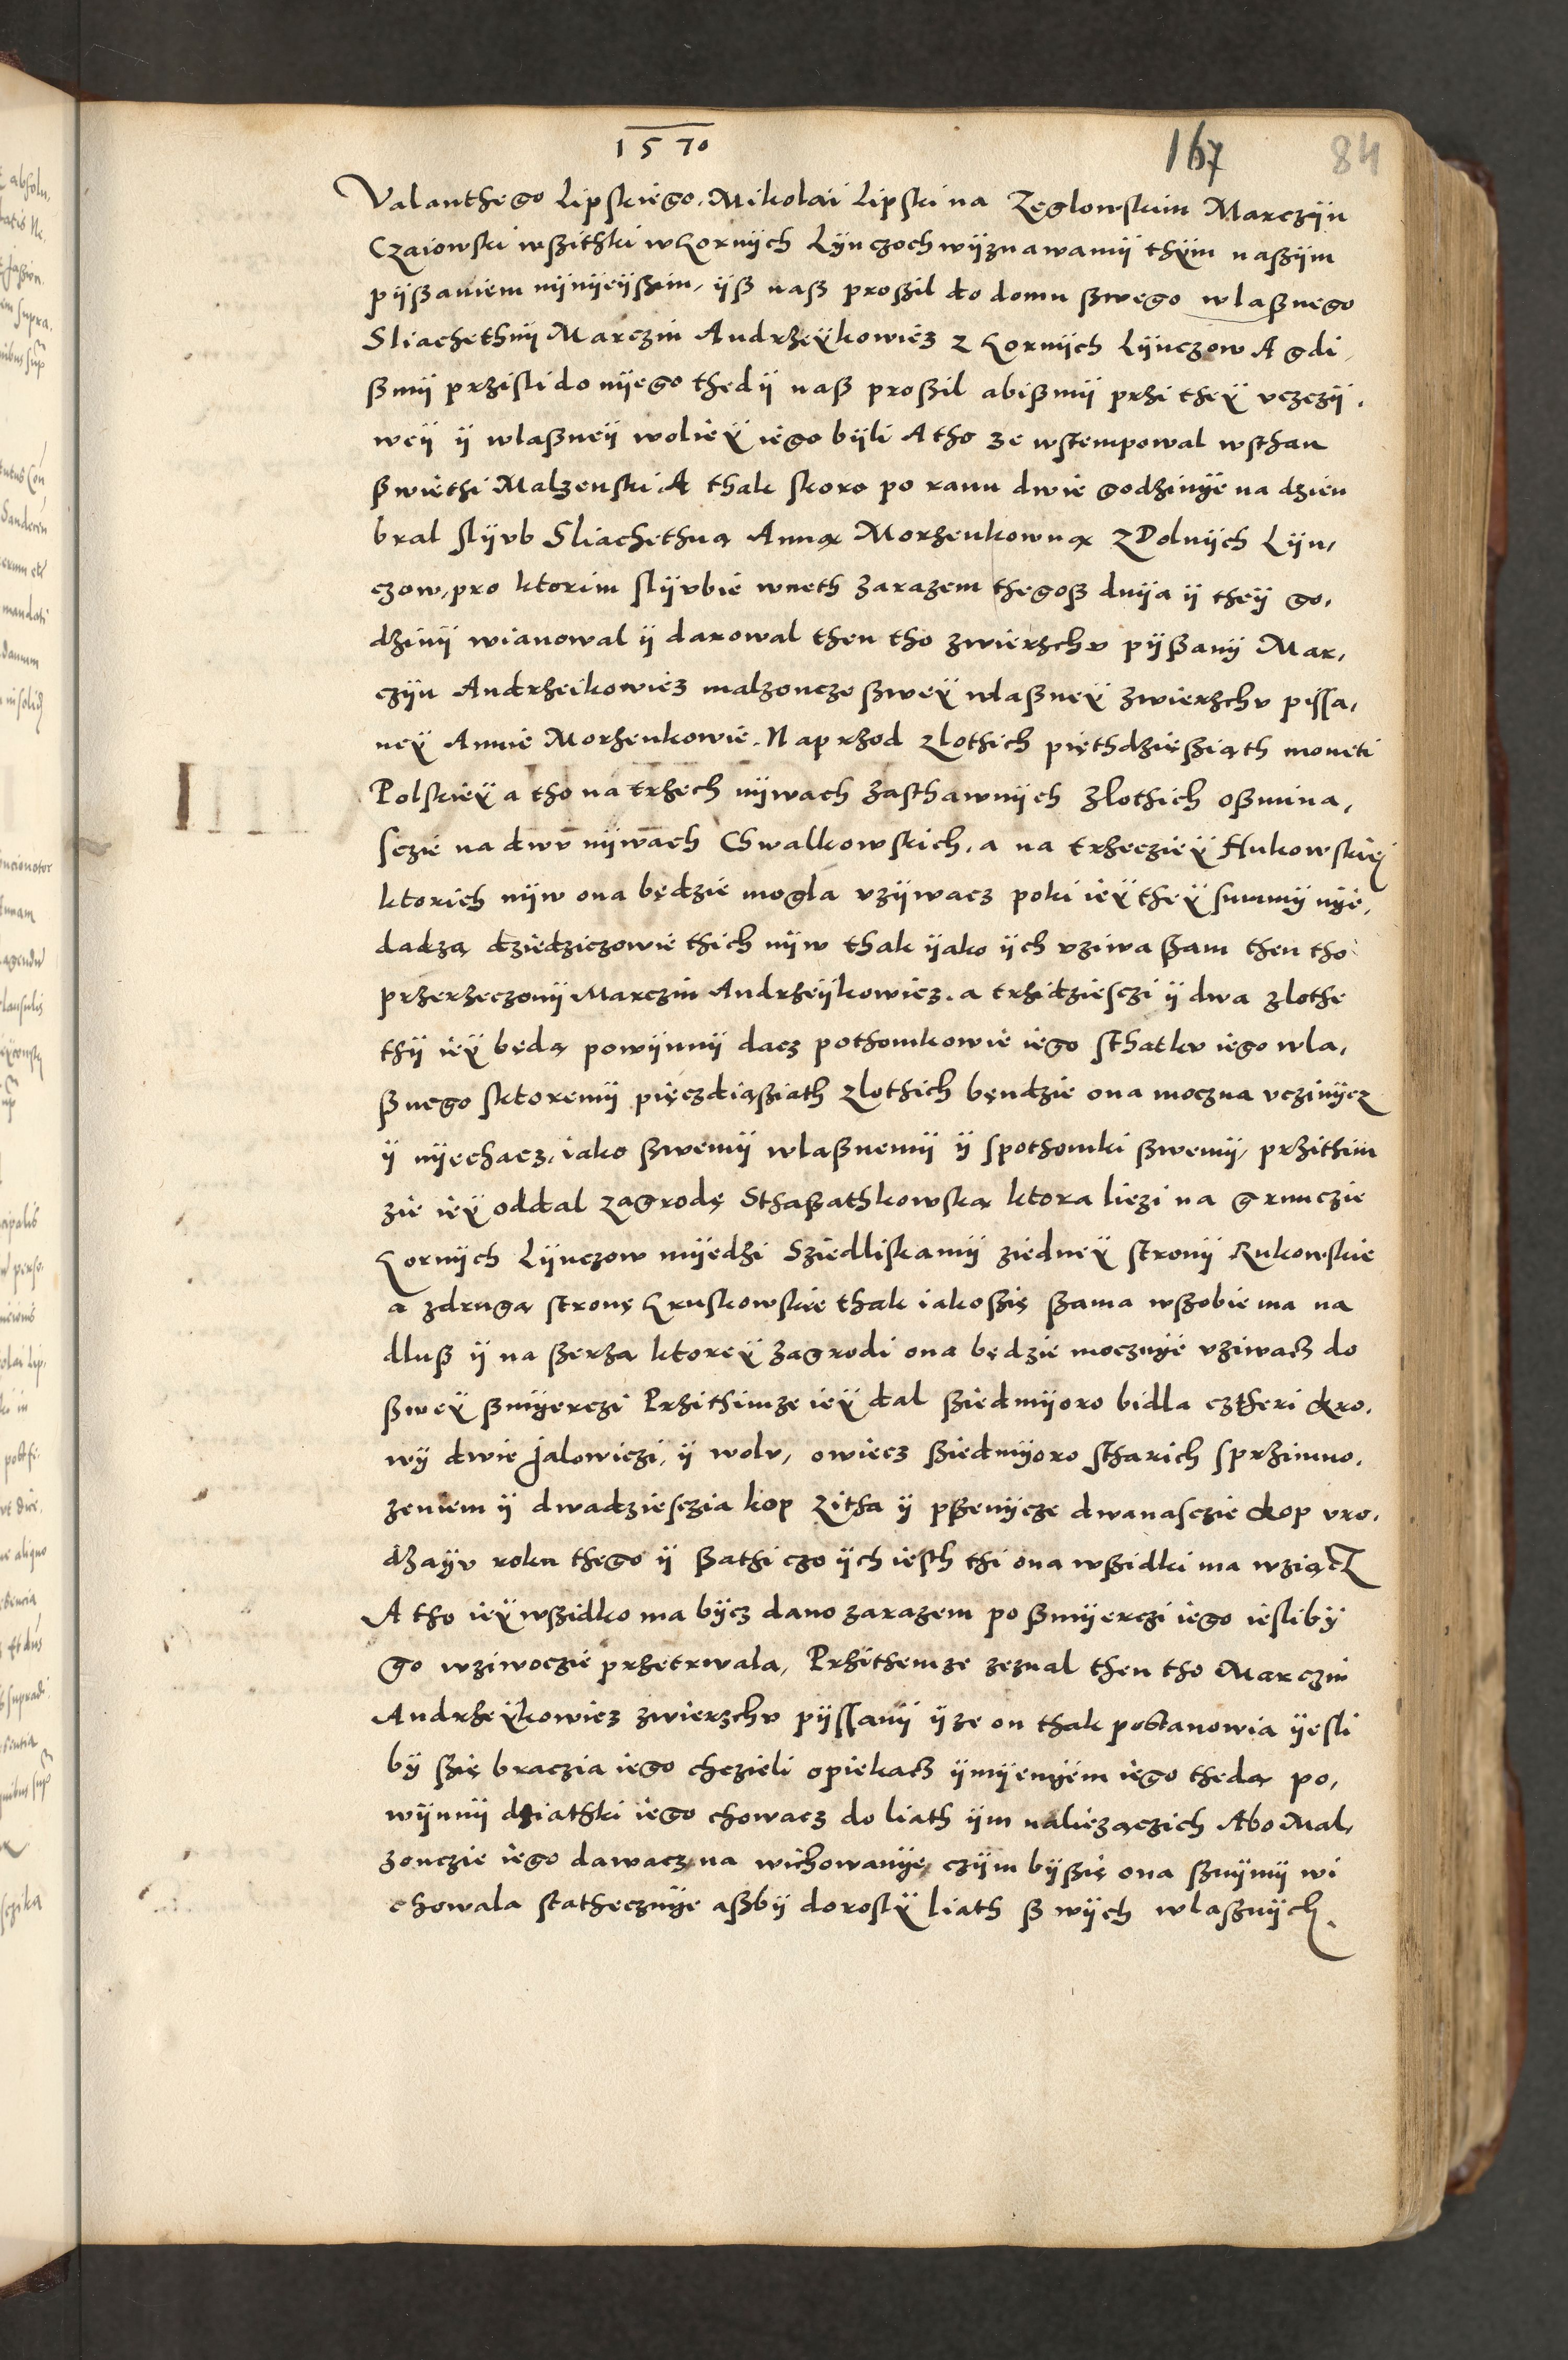 1570
167
84
Valanthego Lipskiego. Mikolai Lipski na Zeglowskim Marczÿn
Czaiowski wszithki w Gornÿch Lÿnczoch wÿznawamÿ thÿm naßÿm
pÿßaniem nÿnÿeÿßim, ÿß naß proßil do domu ßwego wlaßnego
Sliachethnÿ Marczin Andrzeÿkowicz z Gornÿch Lÿnczow A gdi
ßmÿ prziszli do nÿego thedÿ naß proßil abißmÿ przi theÿ vczczÿ,
weÿ ÿ wlaßneÿ wolieÿ iego bÿli A tho ze wstempowal wsthan
ßwiethi Malzenski A thak skoro po ranu dwie godzinÿe na dzien
bral slÿvb Sliachethną Anną Morzenkowną z Dolnÿch Lÿn,
czow, pro ktorim slÿvbie wneth zarazem thegoß dnÿa ÿ theÿ go,
dzinÿ wianowal ÿ darowal then tho zwierzchv pÿßanÿ Mar,
czÿn Andrzeikowicz malzoncze ßweÿ wlaßneÿ zwierzchv pissa,
neÿ Annie Morzenkowie. Naprzod zlothich piethdzießiąth moneti
Polskieÿ a tho na trzech nÿwach zasthawnÿch zlothich oßmina,
sczie na dwv nÿwach Chwalkowskich, a na trzeczieÿ Hukowskieÿ
ktorich nÿw ona będzie mogla vzÿwacz poki ieÿ theÿ summÿ nÿe,
dadzą dziedziczowie thich nÿw thak ÿako ÿch vziwa ßam then tho
przerzeczonÿ Marczin Andrzeÿkowicz. a trzidziesczi ÿ dwa zlothe
thÿ ieÿ będą powÿnnÿ dacz pothomkowie iego sthatkv iego wla,
ßnego sktoremÿ pięczdiąßiath zlothich będzie ona moczna vczinÿcz
ÿ nÿechacz, iako ßwemÿ wlaßnemÿ ÿ spothomki ßwemÿ, przithim
zie ieÿ oddal zagrodę Sthaßathkowską ktora liezi na grunczie
Gornÿch Lÿnczow mÿedzi Sziedliskamÿ ziedneÿ stronÿ Rukowskie
a zdrugą stronę Gruskowskie thak iakoßię ßama wßobie ma na
dluß ÿ na ßerzą ktoreÿ zagrodi ona będzie mocznÿe vziwacz do
ßweÿ ßmÿerczi Przithimze ieÿ dal ßiedmÿoro bidla cztheri kro,
wÿ dwie jalowiczi, ÿ wolv, owiecz ßiedmÿoro stharich sprzimno,
zeniem ÿ dwadziesczia kop zitha ÿ pßenÿcze dwanasczie kop vro,
dzaÿv roku thego ÿ ßathi czo ÿch iesth thi ona wßidki ma wziącz
A tho ieÿ wßidko ma bÿcz dano zarazem po ßmÿerczi iego iesliby
go wziwoczie przetrwala, Przithemze zeznal then tho Marczin
Andrzeÿkowicz zwierzchv pÿssanÿ ÿze on thak postanowia ÿesli
by ßię braczia iego chczieli opiekacz ÿmÿenÿem iego thedą po,
wÿnnÿ dziathki iego chowacz do liath ÿm naliezączich Abo Mal,
zonczie iego dawacz na wichowanÿe, czÿm bÿßię ona ßnÿmÿ wi
chowala stathecznÿe aßbÿ doroslÿ liath ßwÿch wlaßnÿch.